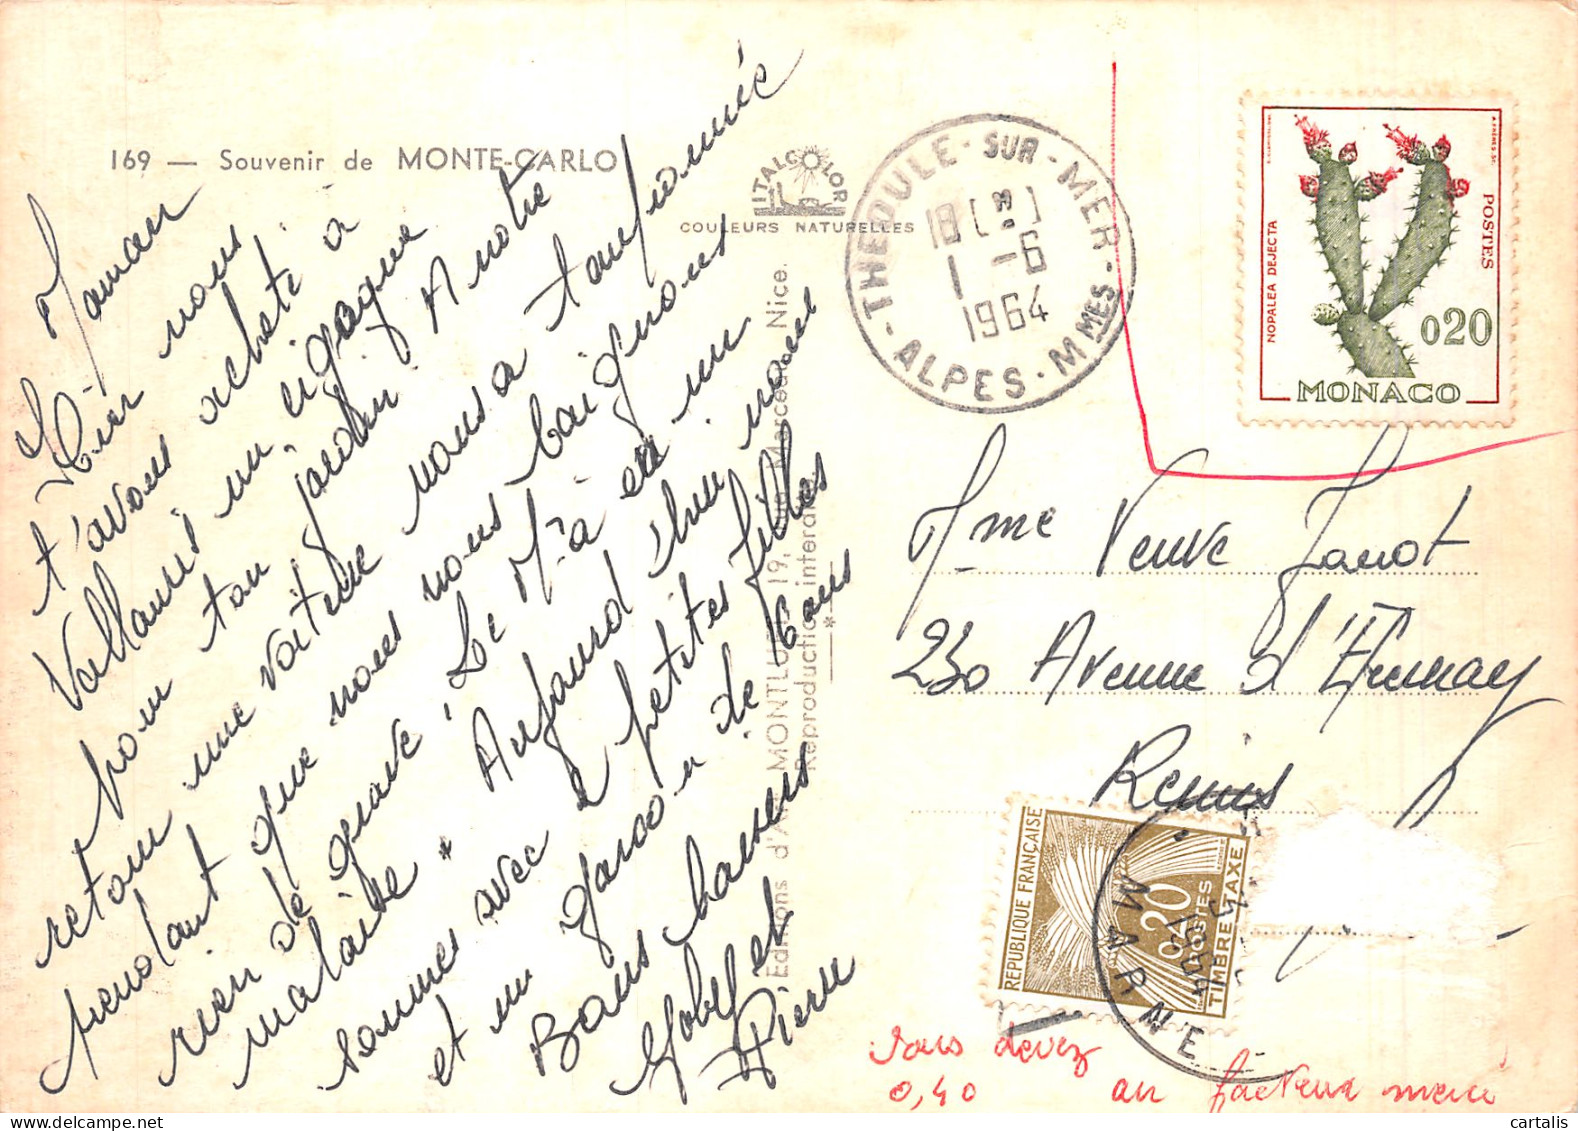 169 — Souvenir de MONTE-CARLO
ITALCOLOR
COULEURS NATURELLES
Maman
Hier nous
t'avons acheté à
Vallauris un
pour ton jardin. A notre
retour une voiture nous a tamponnée
pendant que nous nous baignons
rien de grave "Le M.à en un
malaise" Aujourd'hui nous
sommes avec 2 petites filles
et un garcon de 6 ans
Bons baisers
et
Pierre
Editions d'Art MONTLUET 19, Nice.
Reproduction interdite
*
THEOULE-SUR-MER
ALPES-MMES
18
1 -6
1964
NOPALEA DEJECTA
POSTES
0.20
MONACO
Mme Veuve Janot
230 Avenue d'Epernay
Reims
RÉPUBLIQUE FRANÇAISE
0.20
POSTES
TIMBRE TAXE
1964
MARNE
Vous devez
0,40 au facteur merci
cartalis